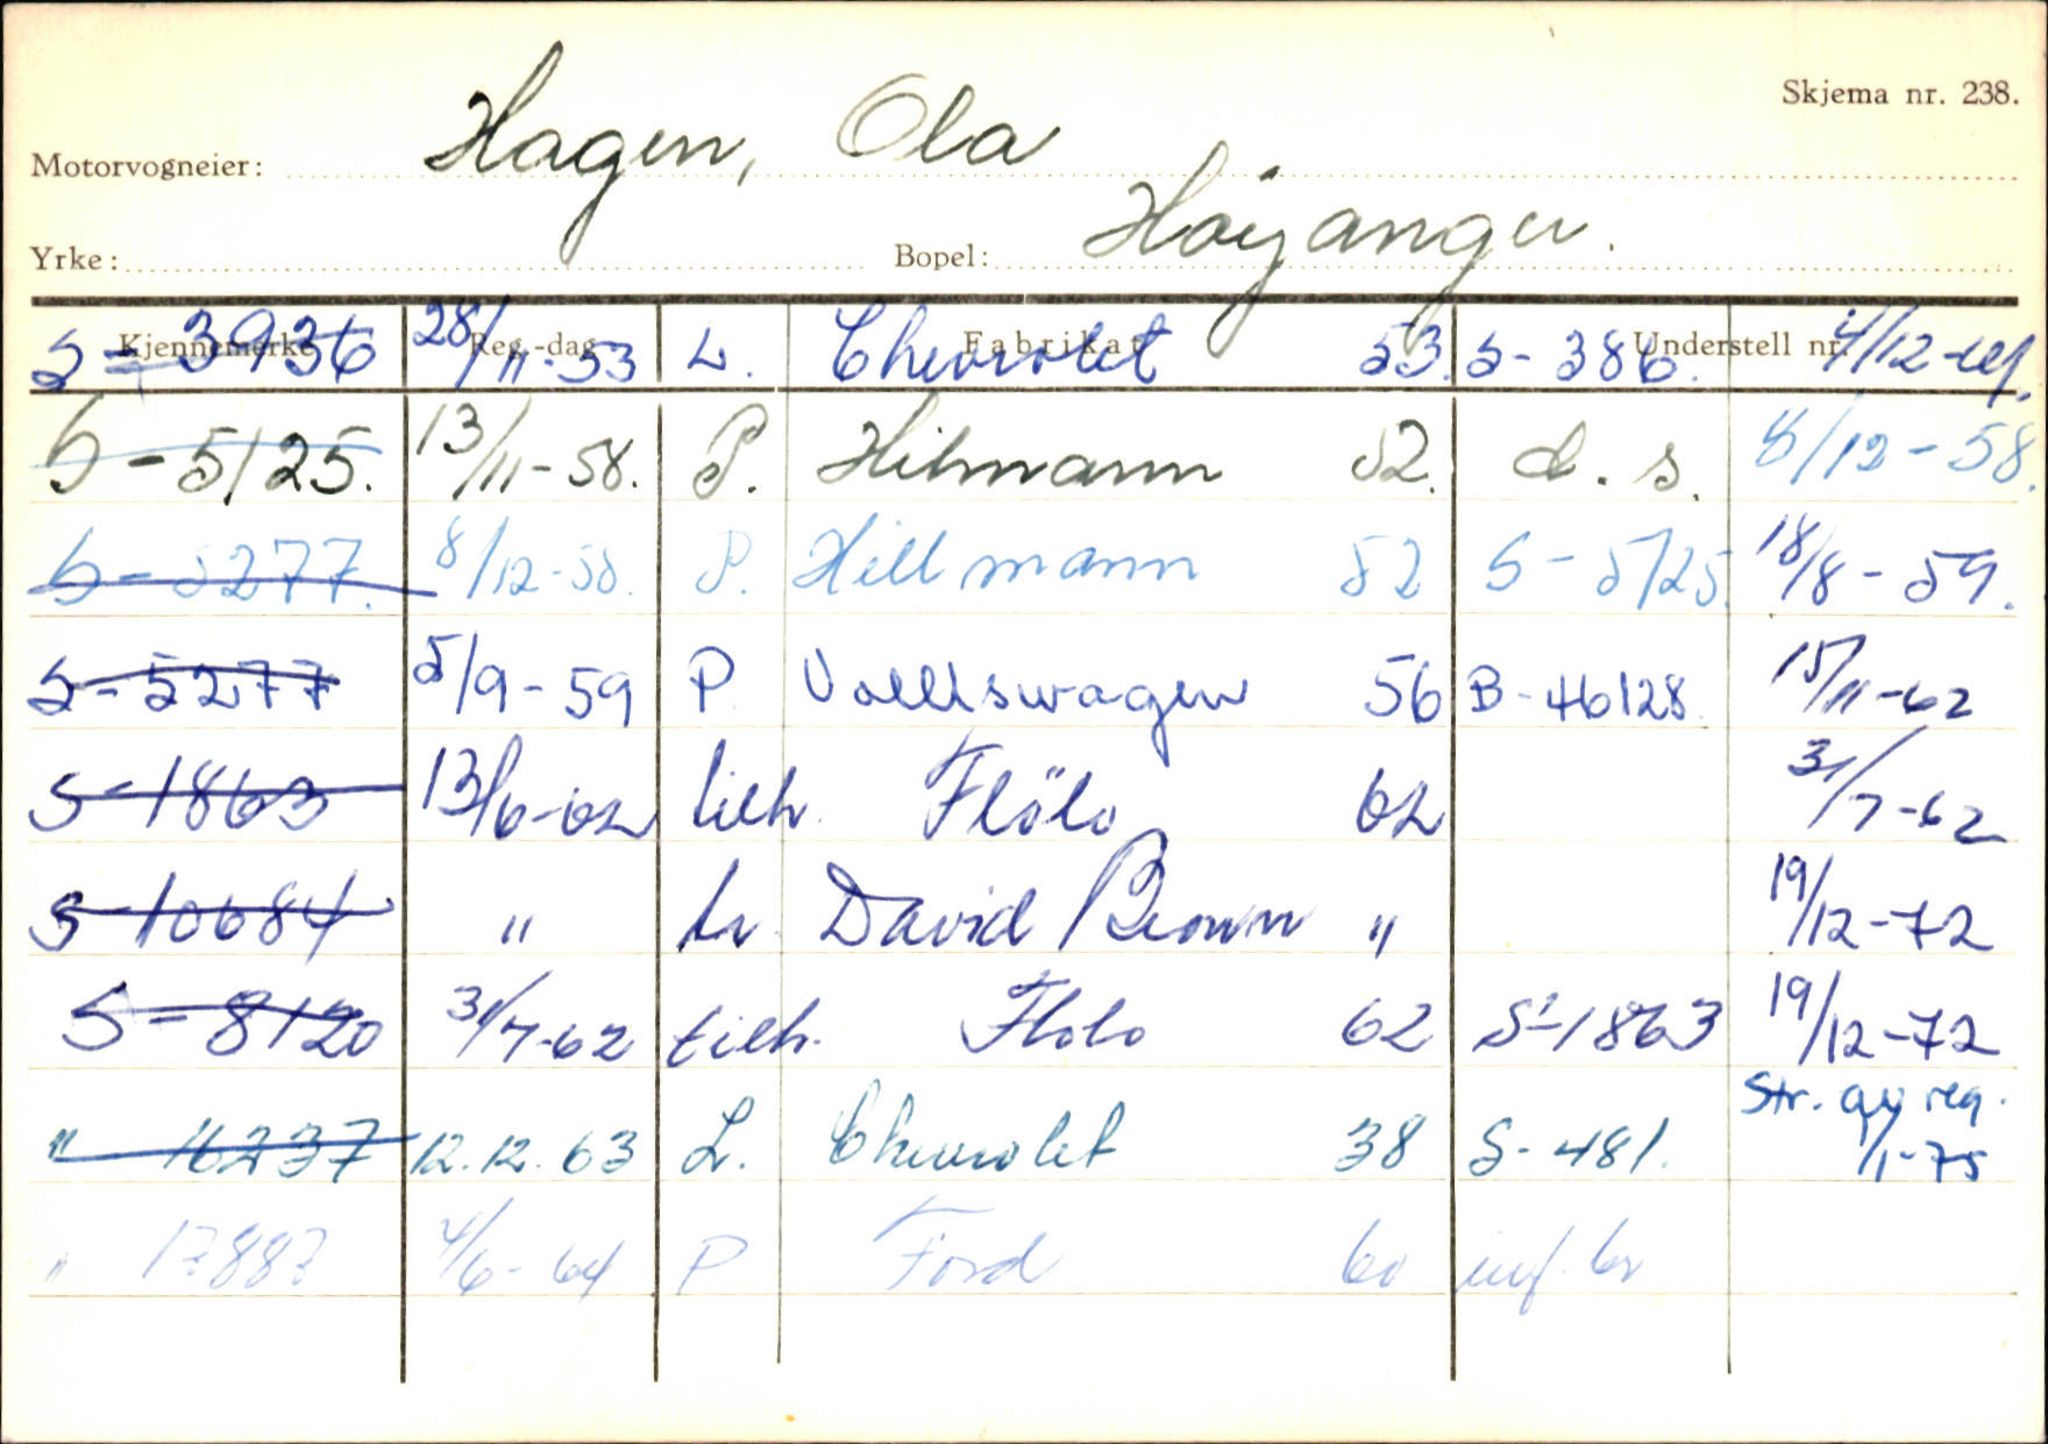 Skjema nr. 238.
Motorvogneier: Hagen, Ola
Yrke: Bopel: Høyanger.
Kjennemerke Reg.-dag Fabrikat Understell nr.
S-3936 28/11-53 L. Chevrolet 53. S-386. 4/12-
S-5125. 13/11-58. P. Hilmann 52. d.s. 8/12-58.
S-5277. 8/12-58. P. Hillmann 52 S-5125 18/8-59.
S-5277 5/9-59 P Volkswagen 56 B-46128. 15/11-62
S-1863 13/6-62 tilh. Flölo 62 31/7-62
S-10684 " tr. David Brown " 19/12-72
S-8120 31/7-62 tilh. Flolo 62 S-1863 19/12-72
" 11237 12.12.63 L. Chevrolet 38 S-481. Str. av reg. 1/1-75
" 4/6-64 P Ford 60 inf. br